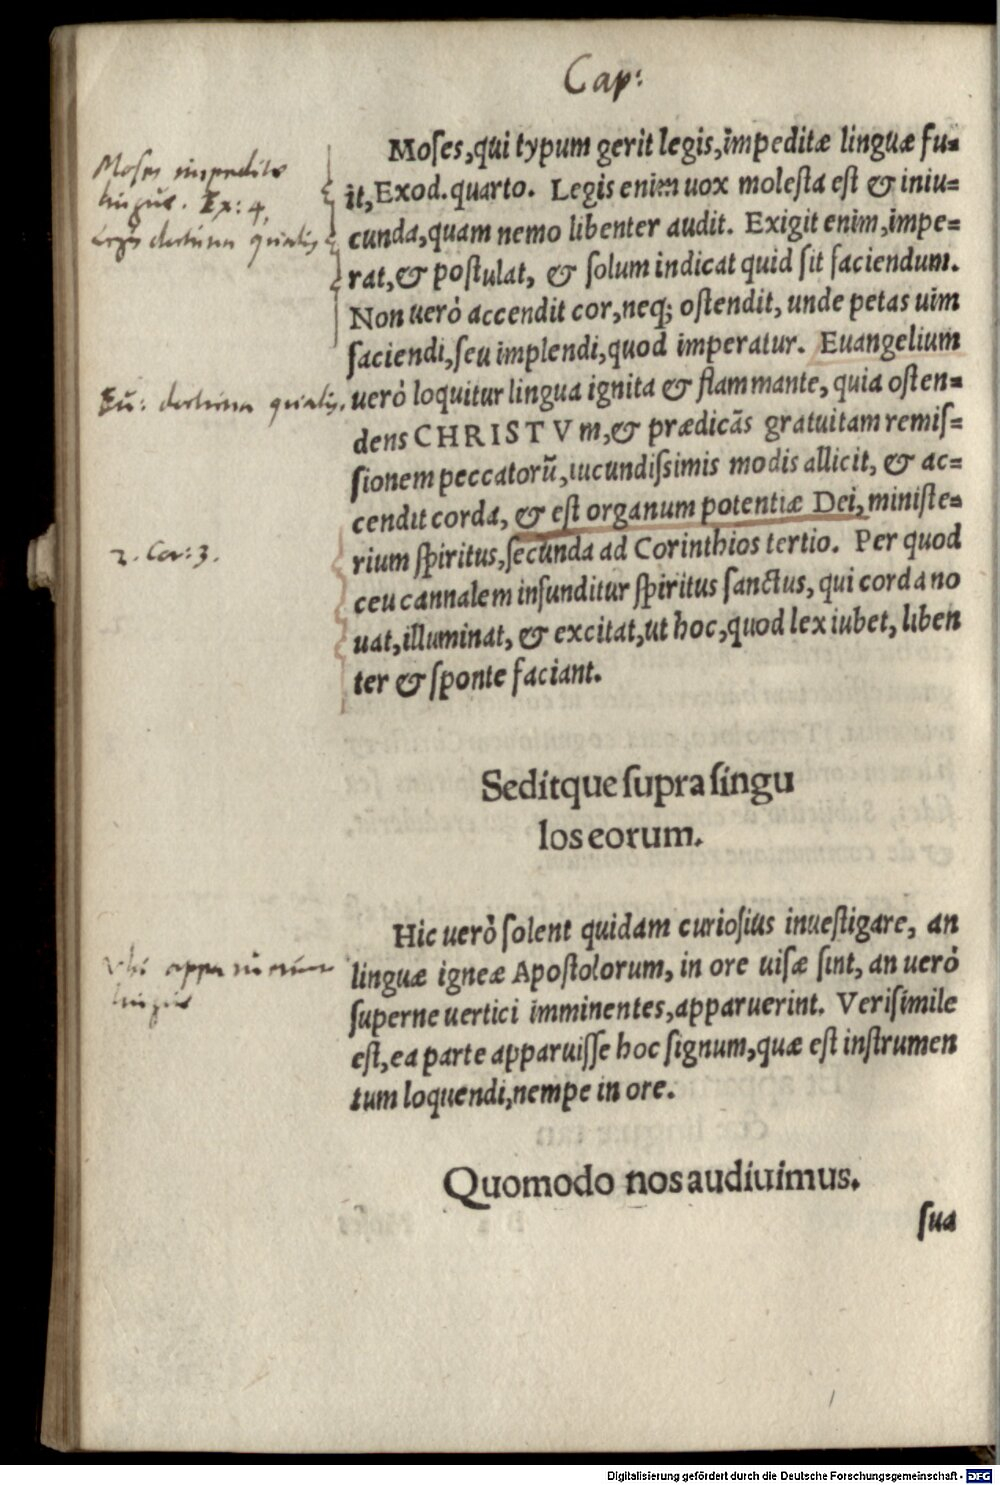 Cap:
Moſes, qui typum gerit legis, impeditæ linguæ fu=
it, Exod. quarto. Legis enim uox moleſta eſt & iniu=
cunda, quam nemo libenter audit. Exigit enim, impe=
rat, & poſtulat, & ſolum indicat quid ſit faciendum.
Non uerò accendit cor, neq; oſtendit, unde petas uim
faciendi, ſeu implendi, quod imperatur. Euangelium
uerò loquitur lingua ignita & flammante, quia oſten=
dens CHRISTVm, & prædicãs gratuitam remiſ=
ſionem peccatorũ, iucundiſsimis modis allicit, & ac=
cendit corda, & eſt organum potentiæ Dei, miniſte=
rium ſpiritus, ſecunda ad Corinthios tertio. Per quod
ceu cannalem infunditur ſpiritus ſanctus, qui corda no
uat, illuminat, & excitat, ut hoc, quod lex iubet, liben
ter & ſponte faciant.
Moses impedite
linguæ. Ex: 4.
Legis doctrina qualis
Eu: doctrina qualis.
2. Cor: 3.
Seditque ſupra ſingu
los eorum.
Hic uerò ſolent quidam curioſius inueſtigare, an
linguæ igneæ Apoſtolorum, in ore uiſæ ſint, an uerò
ſuperne uertici imminentes, apparuerint. Veriſimile
eſt, ea parte apparuiſſe hoc ſignum, quæ eſt inſtrumen
tum loquendi, nempe in ore.
Vbi apparuerint
linguæ
Quomodo nos audiuimus.
ſua
Digitalisierung gefördert durch die Deutsche Forschungsgemeinschaft - DFG